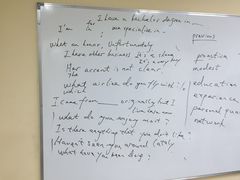 I have a bachelor degree in ....
for
I'm in our specialise in ..
What an honor, Unfortunately
I have other business It's a shame
it's a very busy
Her accent is not clear.
what airline do you fly with
which
I come from originally but I
live here now
what do you enjoy most?
Is there anything that you don't like?
Haven't seen you around lately
What have you been doing?
previous
practice
modest
education
experience
personal
network